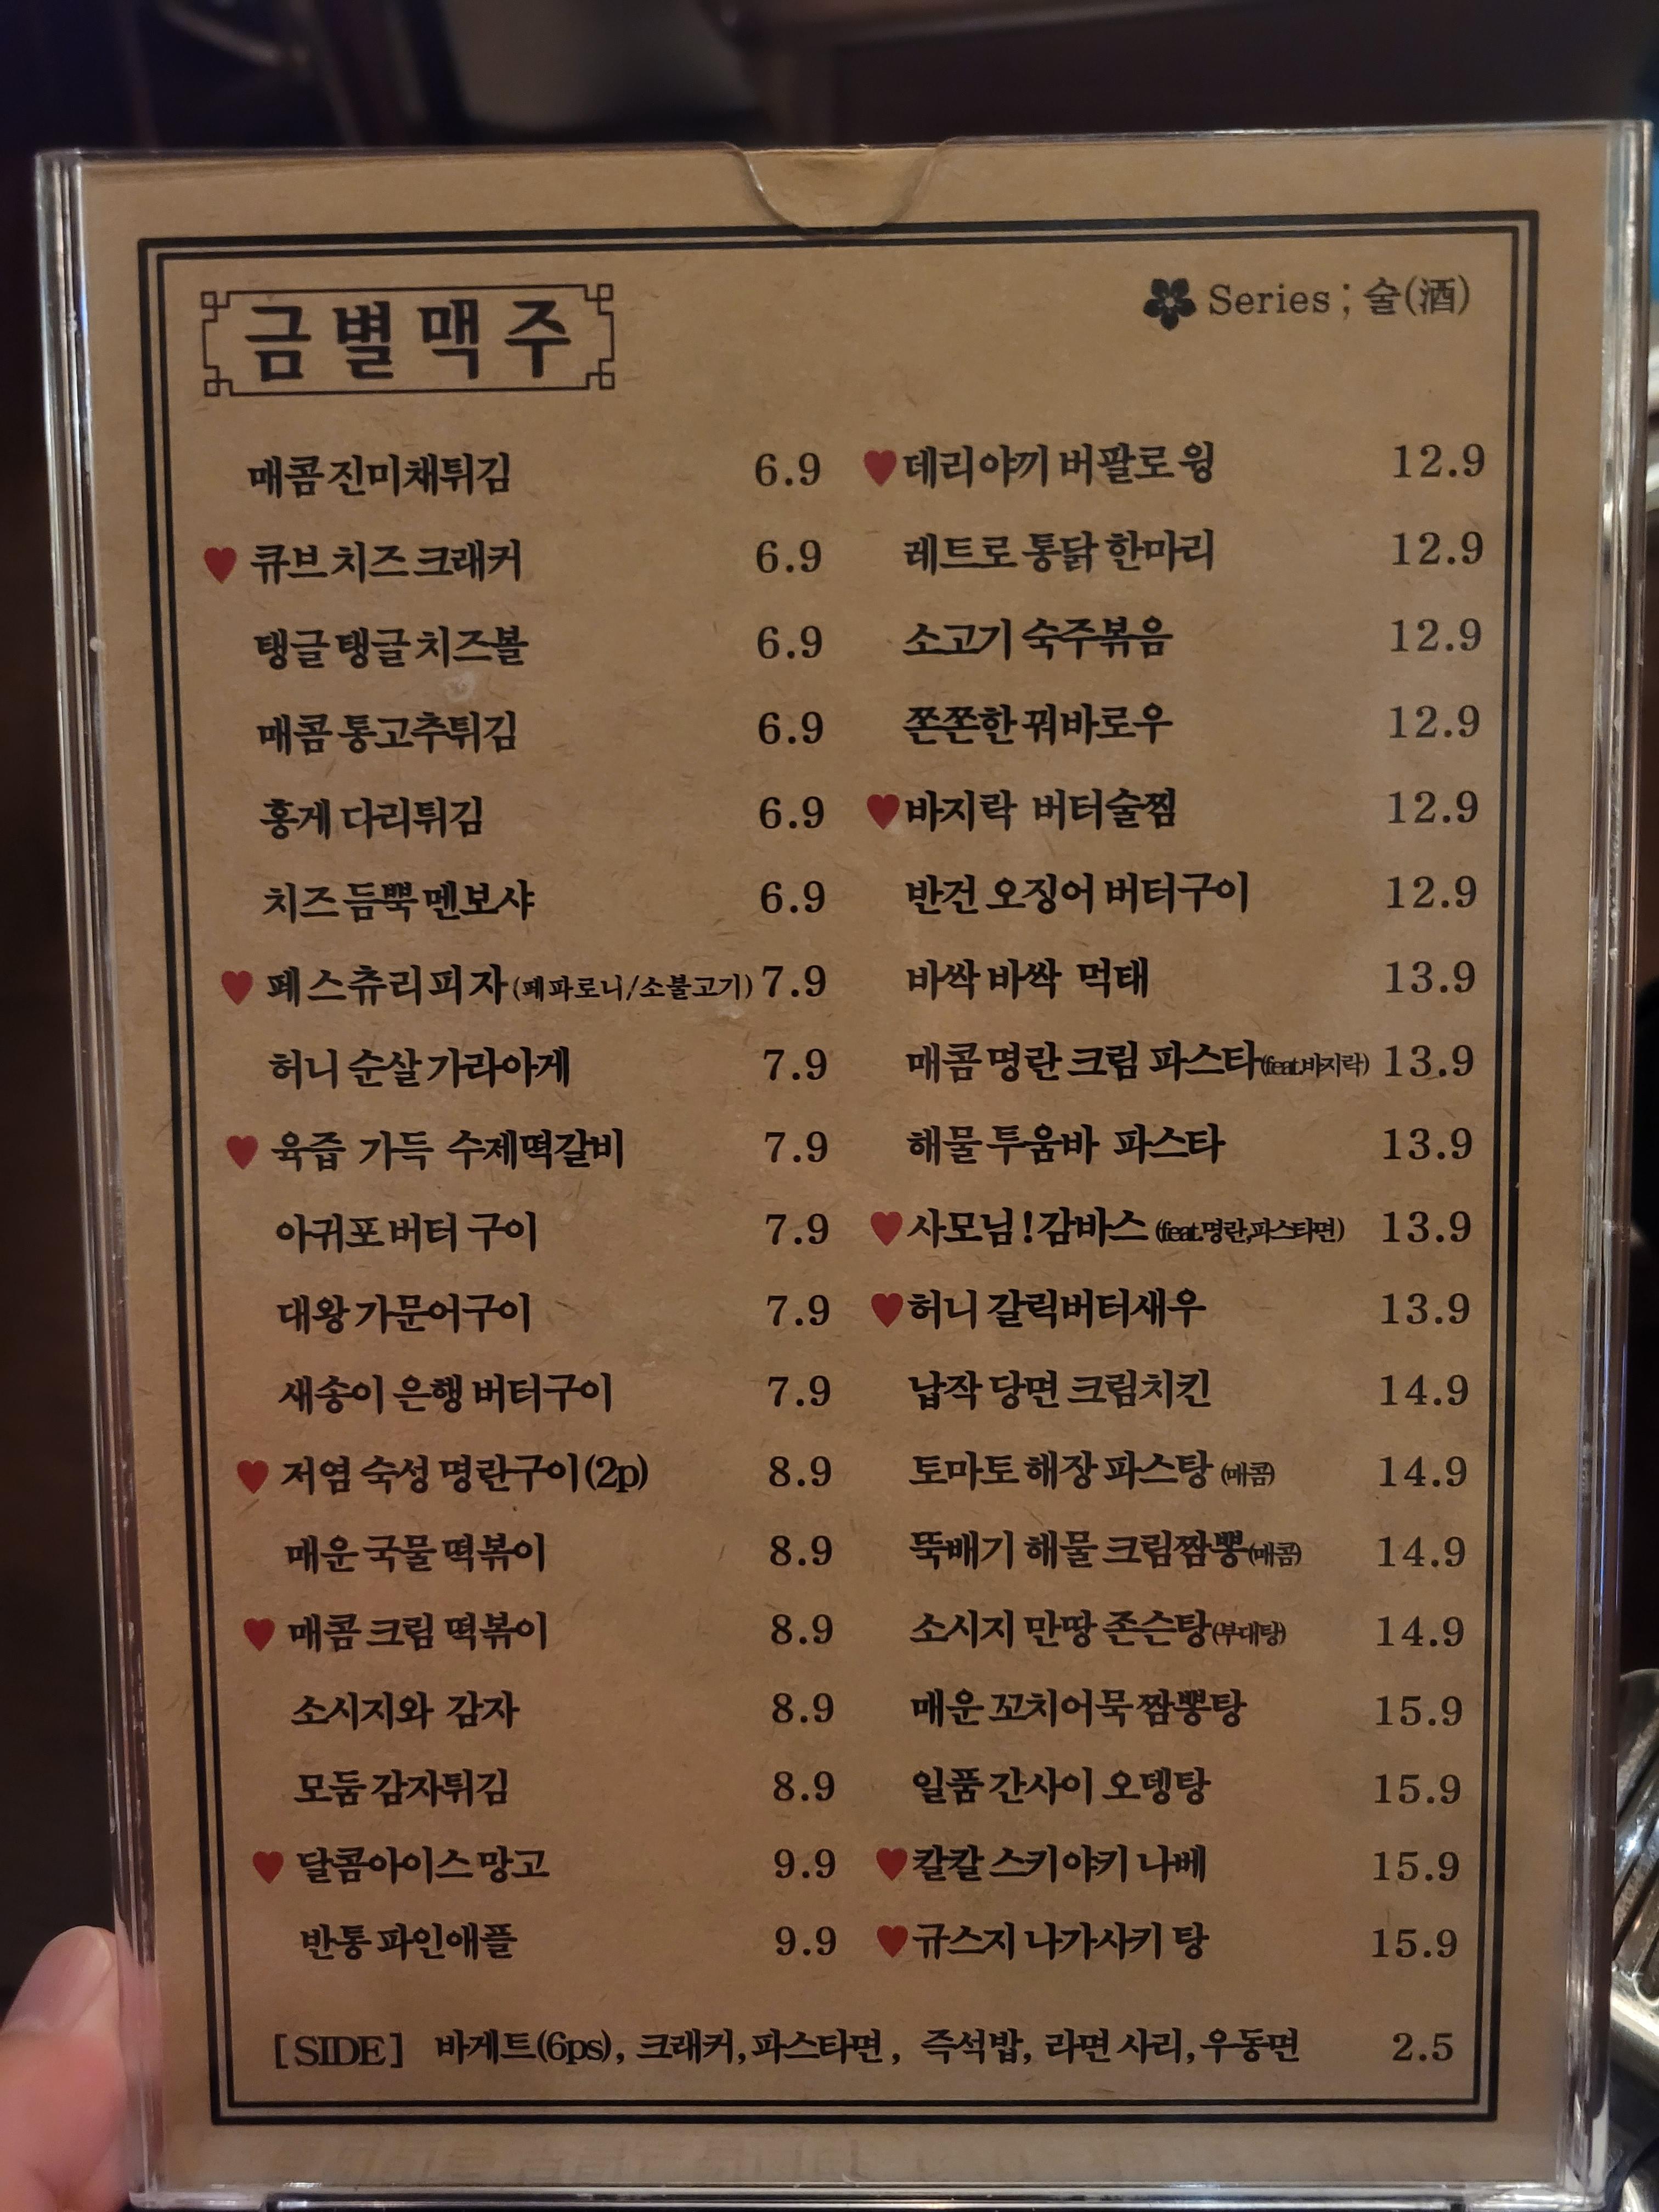 금별맥주
Series ; 술(酒)
매콤 진미채튀김 6.9
♥ 큐브 치즈 크래커 6.9
탱글 탱글 치즈볼 6.9
매콤 통고추튀김 6.9
홍게 다리튀김 6.9
치즈 듬뿍 멘보샤 6.9
♥ 페스츄리 피자 (페파로니/소불고기) 7.9
허니 순살 가라아게 7.9
♥ 육즙 가득 수제떡갈비 7.9
아귀포 버터 구이 7.9
대왕 가문어구이 7.9
새송이 은행 버터구이 7.9
♥ 저염 숙성 명란구이(2p) 8.9
매운 국물 떡볶이 8.9
♥ 매콤 크림 떡볶이 8.9
소시지와 감자 8.9
모둠 감자튀김 8.9
♥ 달콤아이스 망고 9.9
반통 파인애플 9.9
♥ 데리야끼 버팔로 윙 12.9
레트로 통닭 한마리 12.9
소고기 숙주볶음 12.9
쫀쫀한 꿔바로우 12.9
♥ 바지락 버터술찜 12.9
반건 오징어 버터구이 12.9
바싹 바싹 먹태 13.9
매콤 명란 크림 파스타(feat.바지락) 13.9
해물 투움바 파스타 13.9
♥ 사모님! 감바스 (feat.명란,파스타면) 13.9
♥ 허니 갈릭버터새우 13.9
납작 당면 크림치킨 14.9
토마토 해장 파스탕 (매콤) 14.9
뚝배기 해물 크림짬뽕(매콤) 14.9
소시지 만땅 존슨탕(부대탕) 14.9
매운 꼬치어묵 짬뽕탕 15.9
일품 간사이 오뎅탕 15.9
♥ 칼칼 스키야키 나베 15.9
♥ 규스지 나가사키 탕 15.9
[SIDE] 바게트(6ps), 크래커, 파스타면, 즉석밥, 라면 사리, 우동면 2.5